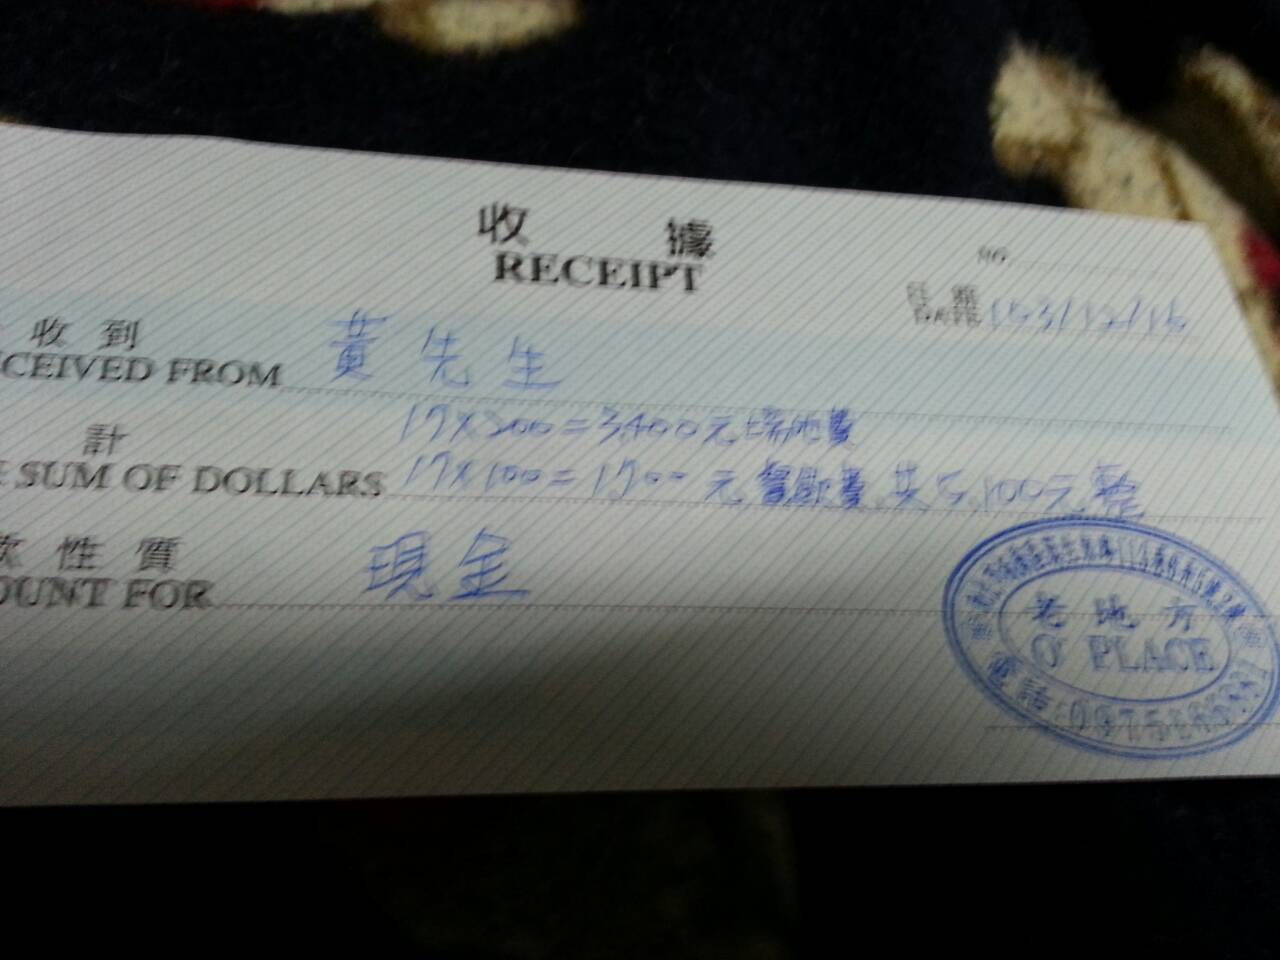 收據
RECEIPT
NO.
日期
DATE 103/12/16
收到 黃先生
CEIVED FROM
17×200=3,400元 場地費
計
SUM OF DOLLARS 17×100=1700元 餐飲費 共5,100元整
款性質 現金
OUNT FOR
老地方
O' PLACE
電話: